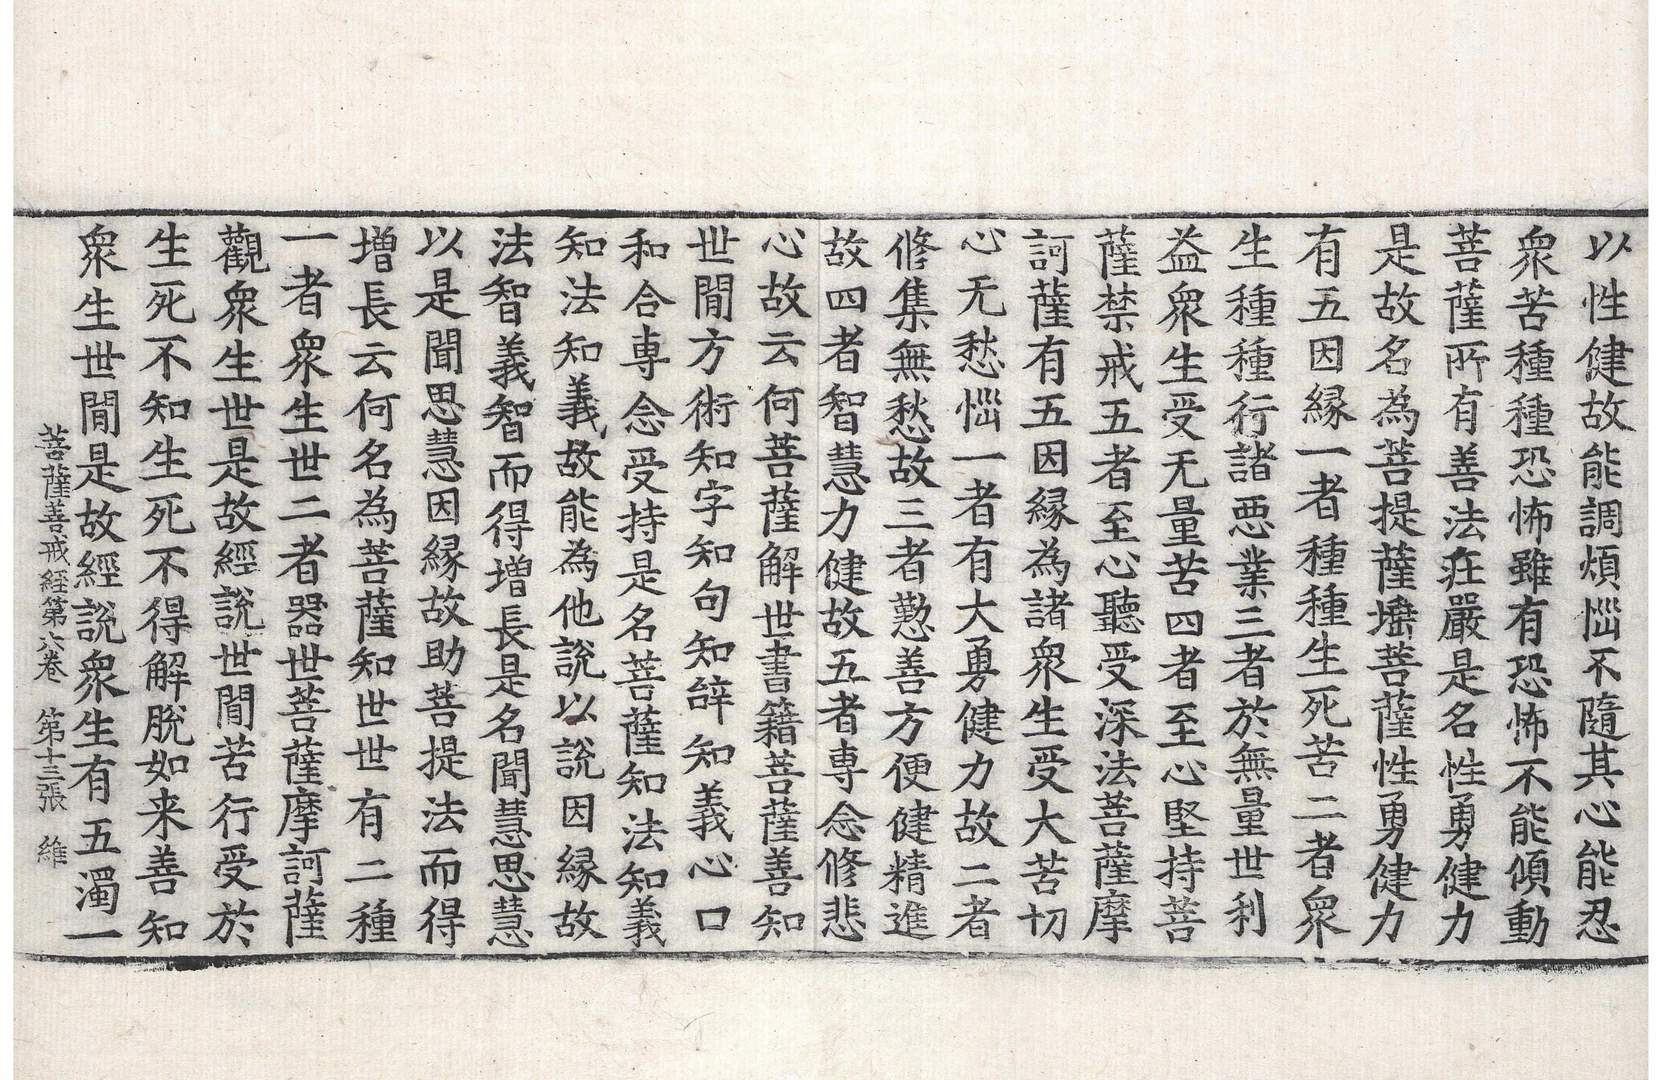 以性健故能調煩惱不隨其心能忍
衆苦種種恐怖雖有恐怖不能傾動
菩薩所有善法莊嚴是名性勇健力
是故名為菩提薩埵菩薩性勇健力
有五因縁一者種種生死苦二者衆
生種種行諸悪業三者於無量世利
益衆生受无量苦四者至心堅持菩
薩禁戒五者至心聽受深法菩薩摩
訶薩有五因縁為諸衆生受大苦切
心无愁惱一者有大勇健力故二者
修集無愁故三者懃善方便健精進
故四者智慧力健故五者專念修悲
心故云何菩薩解世書籍菩薩善知
世間方術知字知句知辝知義心口
和合專念受持是名菩薩知法知義
知法知義故能為他說以說因縁故
法智義智而得增長是名聞慧思慧
以是聞思慧因縁故助菩提法而得
增長云何名為菩薩知世世有二種
一者衆生世二者器世菩薩摩訶薩
觀衆生世是故經說世間苦行受於
生死不知生死不得解脫如来善知
衆生世間是故經說衆生有五濁一
菩薩善戒經第六卷　第十三張　維